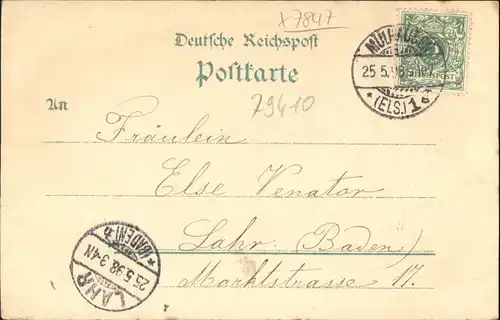 x7847
Deutsche Reichspost
Postkarte
An
79410
25 5.98
(ELS.) 1
REICHSPOST
Fräulein
Else Venator
Lahr (Baden)
Marktstrasse 17.
*(BADEN)*
25.5.98.3-4N
LAHR